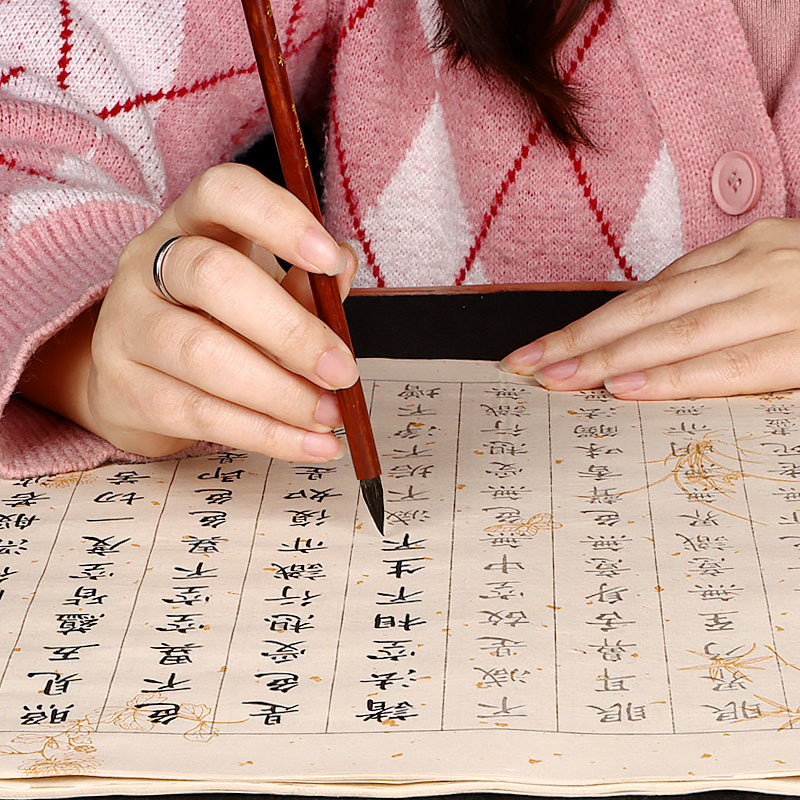 行深般若
照見五蘊皆空度一切苦
色不異空空不異色色即
是色受想行識亦復如是
諸法空相不生不滅不垢不淨不增
不減是故空中無色無受想行識無
眼耳鼻舌身意無色聲香味觸法無
眼界乃至無意識界無無明亦無
老死盡無